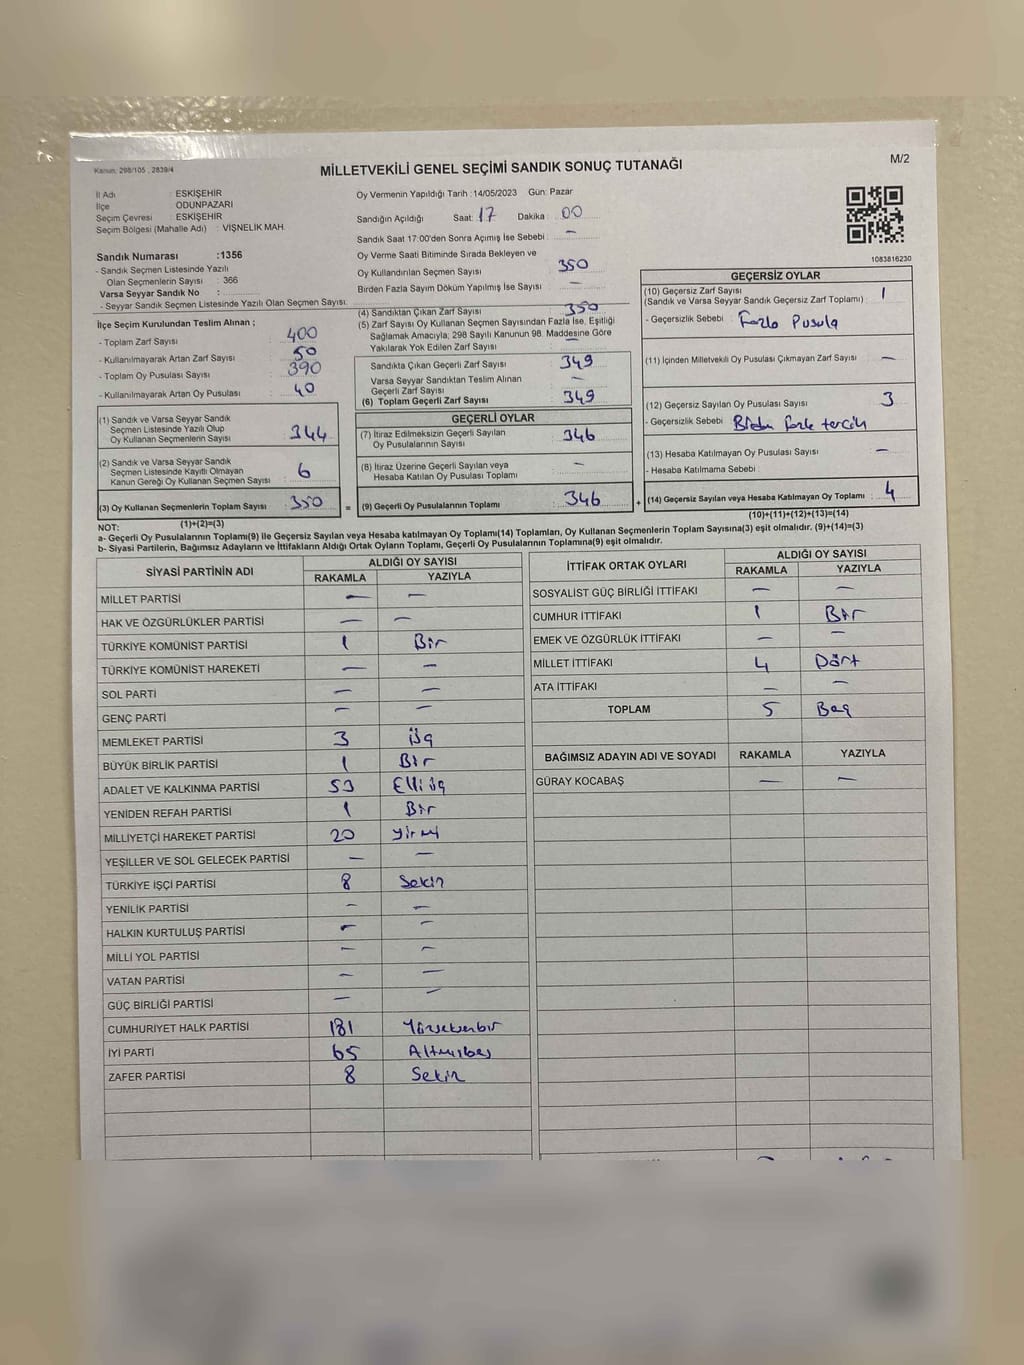 Kanun: 298/105 , 2839/4
MİLLETVEKİLİ GENEL SEÇİMİ SANDIK SONUÇ TUTANAĞI
M/2
İl Adı : ESKİŞEHİR
İlçe : ODUNPAZARI
Seçim Çevresi : ESKİŞEHİR
Seçim Bölgesi (Mahalle Adı) : VİŞNELİK MAH.
Sandık Numarası :1356
- Sandık Seçmen Listesinde Yazılı
Olan Seçmenlerin Sayısı : 366
Varsa Seyyar Sandık No :
- Seyyar Sandık Seçmen Listesinde Yazılı Olan Seçmen Sayısı:
Oy Vermenin Yapıldığı Tarih : 14/05/2023 Gün: Pazar
Sandığın Açıldığı Saat: 17 Dakika : 00
Sandık Saat 17:00'den Sonra Açımış İse Sebebi : —
Oy Verme Saati Bitiminde Sırada Bekleyen ve
Oy Kullandırılan Seçmen Sayısı : 350
Birden Fazla Sayım Döküm Yapılmış İse Sayısı : —
1083816230
İlçe Seçim Kurulundan Teslim Alınan ;
- Toplam Zarf Sayısı : 400
- Kullanılmayarak Artan Zarf Sayısı : 50
- Toplam Oy Pusulası Sayısı : 390
- Kullanılmayarak Artan Oy Pusulası : 40
(1) Sandık ve Varsa Seyyar Sandık
Seçmen Listesinde Yazılı Olup
Oy Kullanan Seçmenlerin Sayısı : 344
(2) Sandık ve Varsa Seyyar Sandık
Seçmen Listesinde Kayıtlı Olmayan
Kanun Gereği Oy Kullanan Seçmen Sayısı : 6
(3) Oy Kullanan Seçmenlerin Toplam Sayısı : 350
(1)+(2)=(3)
(4) Sandıktan Çıkan Zarf Sayısı : 350
(5) Zarf Sayısı Oy Kullanan Seçmen Sayısından Fazla İse, Eşitliği
Sağlamak Amacıyla; 298 Sayılı Kanunun 98. Maddesine Göre
Yakılarak Yok Edilen Zarf Sayısı : —
Sandıkta Çıkan Geçerli Zarf Sayısı : 349
Varsa Seyyar Sandıktan Teslim Alınan
Geçerli Zarf Sayısı : —
(6) Toplam Geçerli Zarf Sayısı : 349
GEÇERLİ OYLAR
(7) İtiraz Edilmeksizin Geçerli Sayılan
Oy Pusulalarının Sayısı : 346
(8) İtiraz Üzerine Geçerli Sayılan veya
Hesaba Katılan Oy Pusulası Sayısı : —
= (9) Geçerli Oy Pusulalarının Toplamı : 346
GEÇERSİZ OYLAR
(10) Geçersiz Zarf Sayısı : 1
(Sandık ve Varsa Seyyar Sandık Geçersiz Zarf Toplamı)
- Geçersizlik Sebebi : Fazla Pusula
(11) İçinden Milletvekili Oy Pusulası Çıkmayan Zarf Sayısı : —
(12) Geçersiz Sayılan Oy Pusulası Sayısı : 3
- Geçersizlik Sebebi : Birden fazla tercih
(13) Hesaba Katılmayan Oy Pusulası Sayısı : —
- Hesaba Katılmama Sebebi :
+ (14) Geçersiz Sayılan veya Hesaba Katılmayan Oy Toplamı : 4
(10)+(11)+(12)+(13)=(14)
NOT:
a- Geçerli Oy Pusulalarının Toplamı(9) ile Geçersiz Sayılan veya Hesaba katılmayan Oy Toplamı(14) Toplamları, Oy Kullanan Seçmenlerin Toplam Sayısına(3) eşit olmalıdır. (9)+(14)=(3)
b- Siyasi Partilerin, Bağımsız Adayların ve İttifakların Aldığı Ortak Oyların Toplamı, Geçerli Oy Pusulalarının Toplamına(9) eşit olmalıdır.
SİYASİ PARTİNİN ADI ALDIĞI OY SAYISI
RAKAMLA YAZIYLA
MİLLET PARTİSİ — —
HAK VE ÖZGÜRLÜKLER PARTİSİ — —
TÜRKİYE KOMÜNİST PARTİSİ 1 Bir
TÜRKİYE KOMÜNİST HAREKETİ — —
SOL PARTİ — —
GENÇ PARTİ — —
MEMLEKET PARTİSİ 3 üç
BÜYÜK BİRLİK PARTİSİ 1 Bir
ADALET VE KALKINMA PARTİSİ 53 Elliüç
YENİDEN REFAH PARTİSİ 1 Bir
MİLLİYETÇİ HAREKET PARTİSİ 20 yirmi
YEŞİLLER VE SOL GELECEK PARTİSİ — —
TÜRKİYE İŞÇİ PARTİSİ 8 Sekiz
YENİLİK PARTİSİ — —
HALKIN KURTULUŞ PARTİSİ — —
MİLLİ YOL PARTİSİ — —
VATAN PARTİSİ — —
GÜÇ BİRLİĞİ PARTİSİ — —
CUMHURİYET HALK PARTİSİ 181 Yüzseksenbir
İYİ PARTİ 65 Altmışbeş
ZAFER PARTİSİ 8 Sekiz
İTTİFAK ORTAK OYLARI ALDIĞI OY SAYISI
RAKAMLA YAZIYLA
SOSYALİST GÜÇ BİRLİĞİ İTTİFAKI — —
CUMHUR İTTİFAKI 1 Bir
EMEK VE ÖZGÜRLÜK İTTİFAKI — —
MİLLET İTTİFAKI 4 Dört
ATA İTTİFAKI — —
TOPLAM 5 Beş
BAĞIMSIZ ADAYIN ADI VE SOYADI RAKAMLA YAZIYLA
GÜRAY KOCABAŞ — —